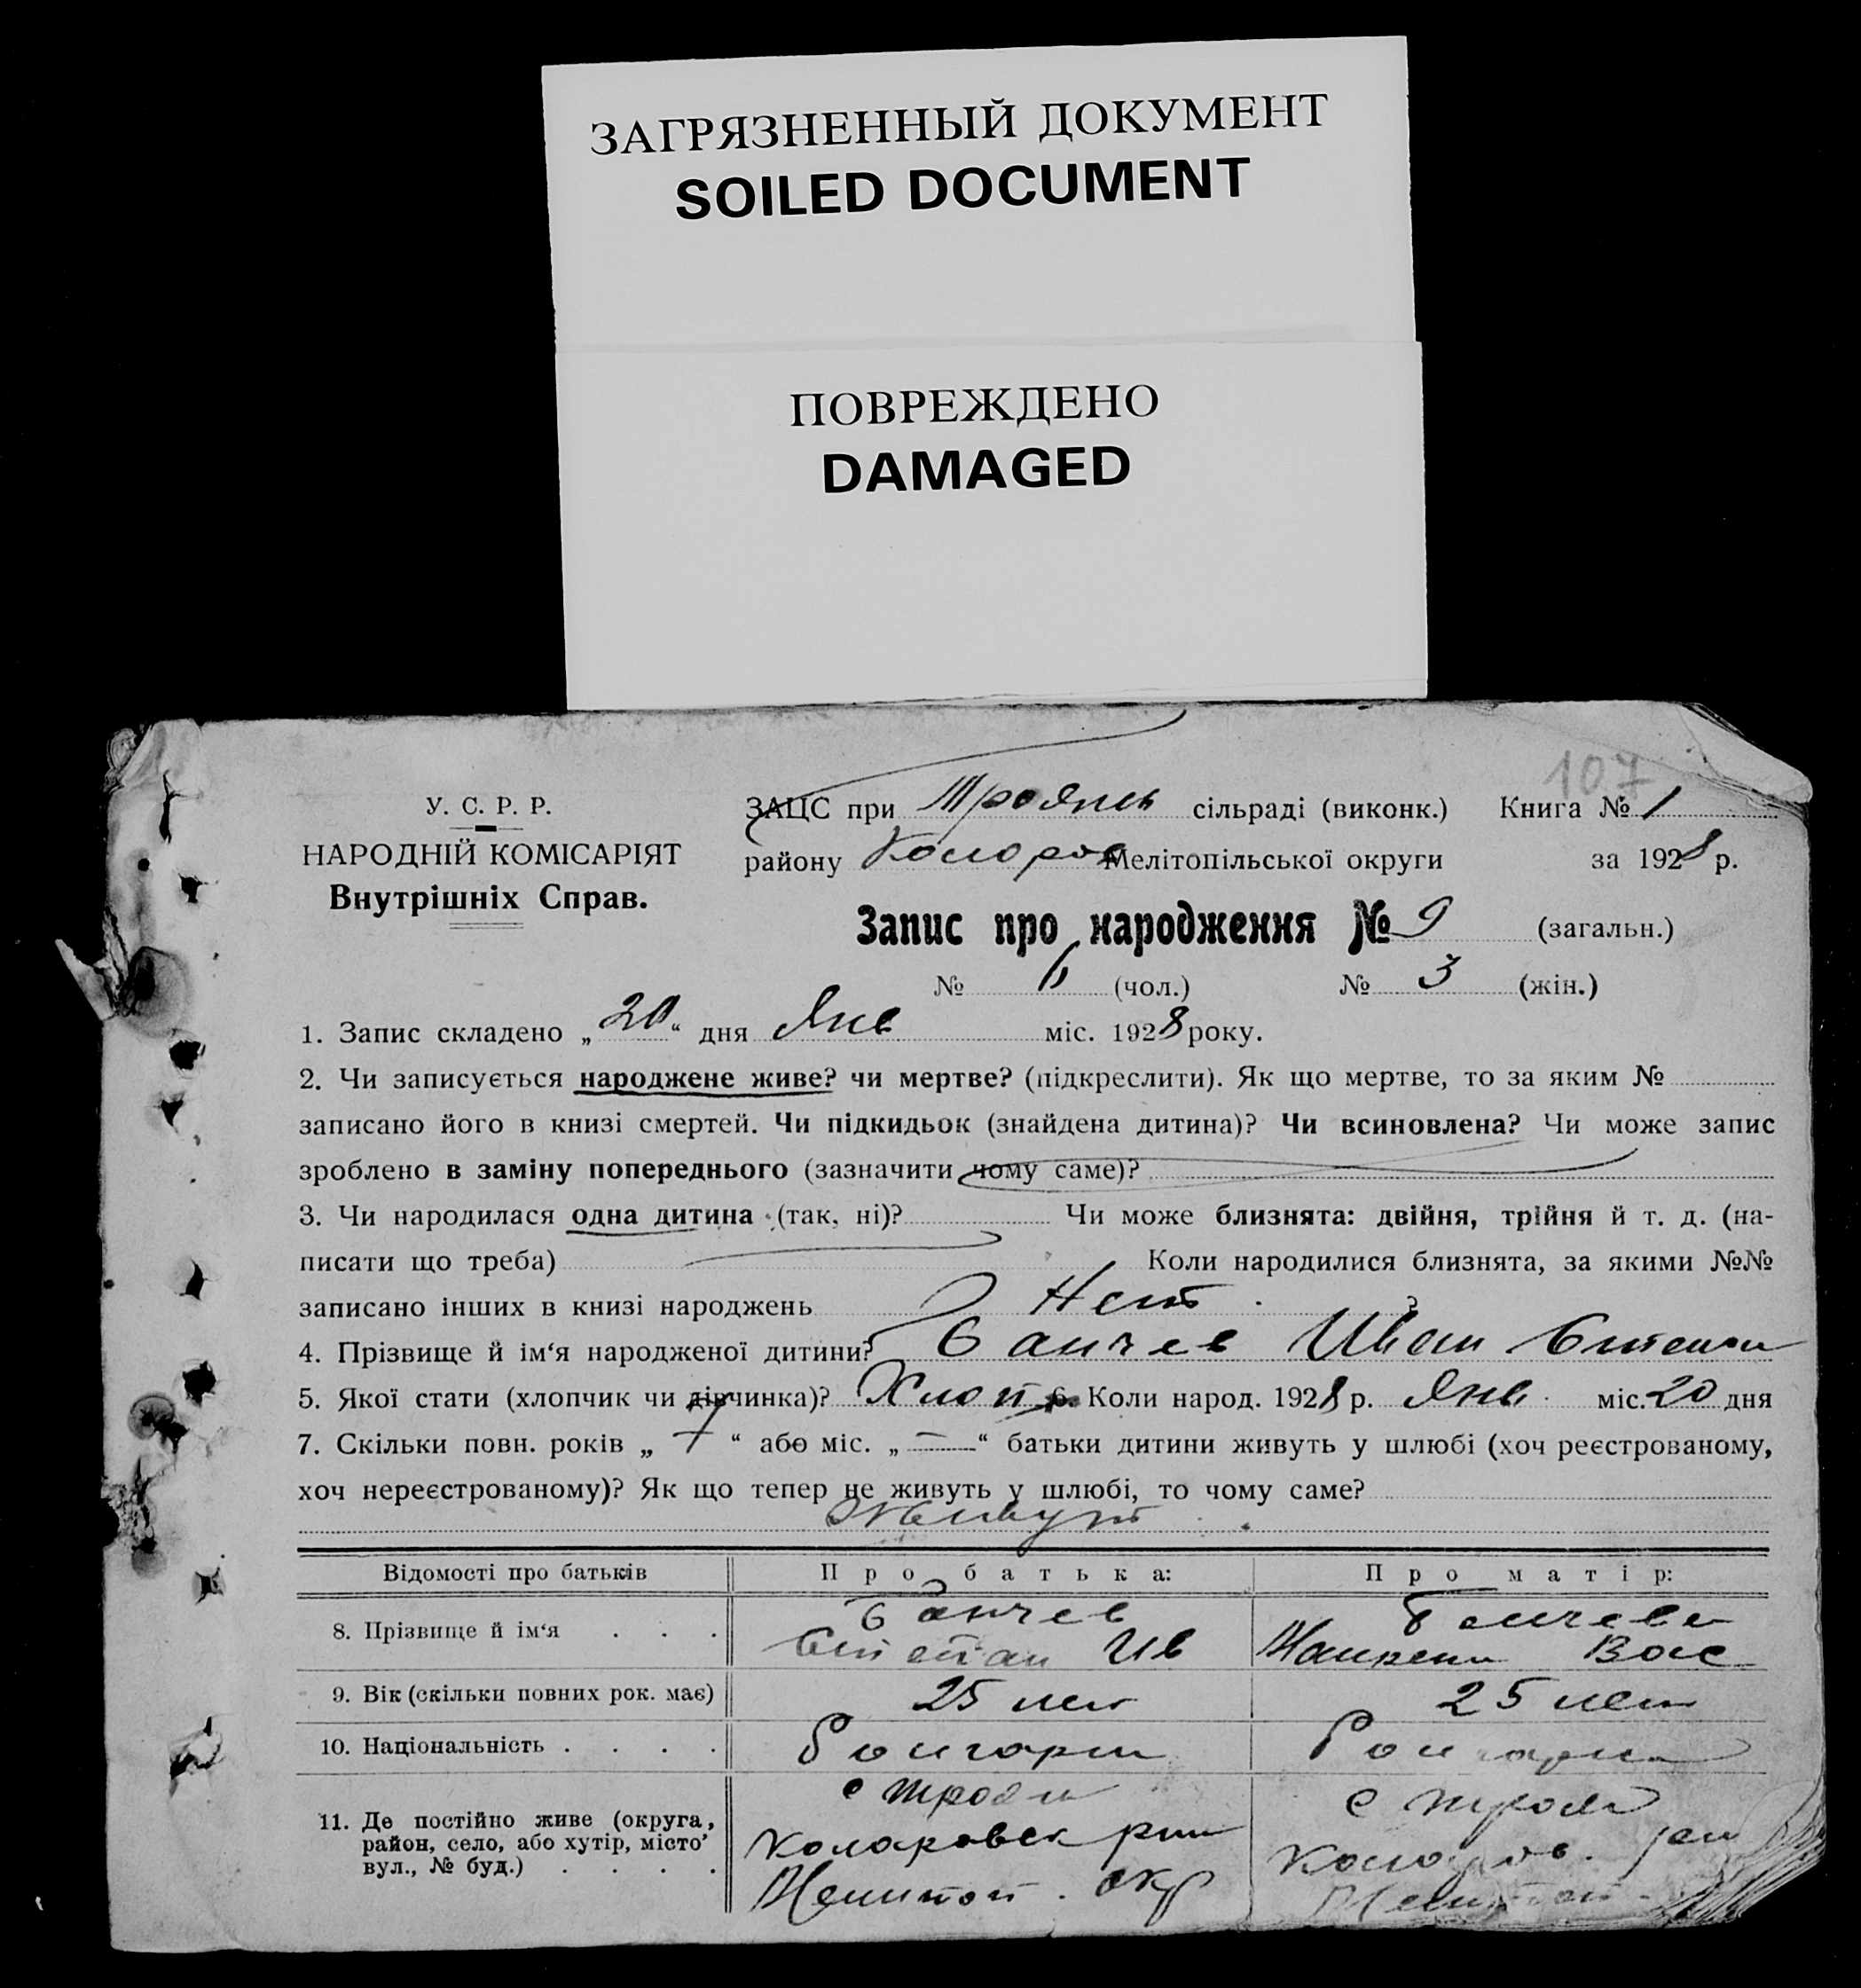 ЗАГРЯЗНЕННЫЙ ДОКУМЕНТ
SOILED DOCUMENT
ПОВРЕЖДЕНО
DAMAGED
107
У. С. Р. Р.
НАРОДНІЙ КОМІСАРІЯТ
Внутрішніх Справ.
ЗАЦС при Троянів сільраді (виконк.) Книга № 1
району Коларов Мелітопільської округи за 1928 р.
Запис про народження № 9 (загальн.)
№ 6 (чол.) № 3 (жін.)
1. Запис складено „20“ дня Янв міс. 1928 року.
2. Чи записується народжене живе? чи мертве? (підкреслити). Як що мертве, то за яким №
записано його в книзі смертей. Чи підкидьок (знайдена дитина)? Чи всиновлена? Чи може запис
зроблено в заміну попереднього (зазначити чому саме)?
3. Чи народилася одна дитина (так, ні)? Чи може близнята: двійня, трійня й т. д. (на-
писати що треба) Коли народилися близнята, за якими №№
записано інших в книзі народжень Нет ?
4. Прізвище й ім‘я народженої дитини? Банчев Иван Степан
5. Якої стати (хлопчик чи дівчинка)? Хлоп 6. Коли народ. 1928 р. Янв. міс. 20 дня
7. Скільки повн. років „7“ або міс. „—“ батьки дитини живуть у шлюбі (хоч реєстрованому,
хоч нереєстрованому)? Як що тепер не живуть у шлюбі, то чому саме?
Живут
Відомості про батьків Про батька: Про матір:
8. Прізвище й ім‘я . . . Банчев Степан Ив Банчева Вас
9. Вік (скільки повних рок. має) 25 лет 25 лет
10. Національність . . . . Болгарин Болгарка
11. Де постійно живе (округа, район, село, або хутір, місто‘ вул., № буд.) . . . .
с Троян
Коларовск рин
Мелитоп. окр
с Троян
Коларов. рай
Мелитоп.